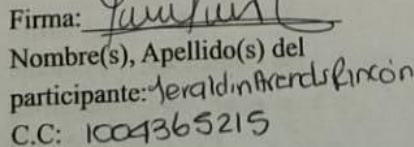 Firma:
Nombre(s), Apellido(s) del
participante: Yeraldin Arends Rincón
C.C: 1004365215